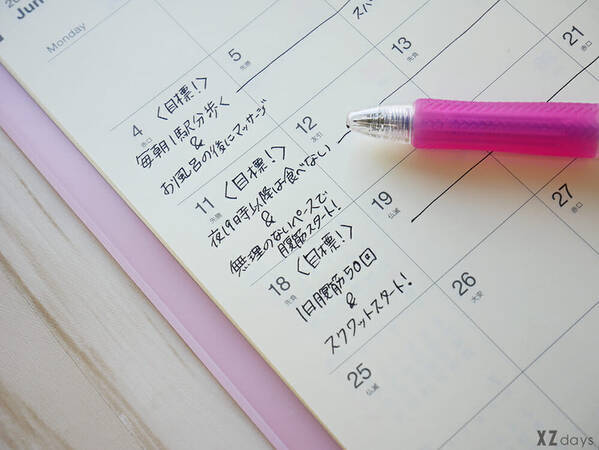 Jun
Monday
4
赤口
〈目標!〉
毎朝1駅分歩く
&
お風呂の後にマッサージ
5
先勝
11
先勝
〈目標!〉
夜19時以降は食べない
&
無理のないペースで
腹筋スタート!
12
友引
13
先負
18
先負
〈目標!〉
1日腹筋50回
&
スクワットスタート!
19
仏滅
21
赤口
25
仏滅
26
大安
27
赤口
XZ days